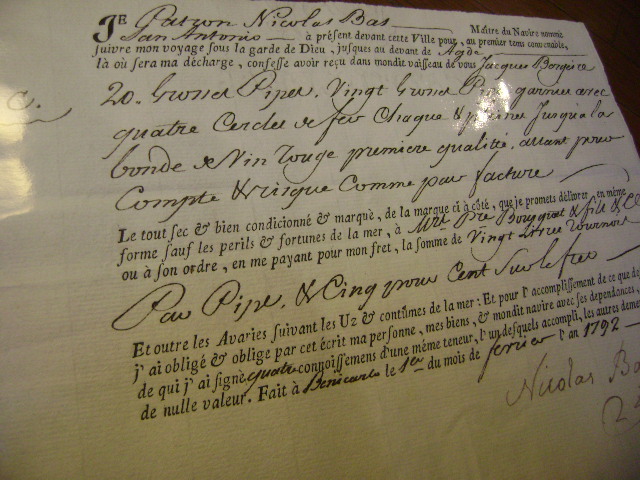 JE Patron Nicolas Bas Maître du Navire nommé
San Antonio à présent devant cette Ville pour, au premier tems convenable,
suivre mon voyage sous la garde de Dieu, jusques au devant de Agde
là où sera ma décharge, confesse avoir reçu dans mondit vaisseau de vous Jacques
20. Grosses Pipes. Vingt Grosses Pipes garnies avec
quatre Cercles de fer Chaque & pleines Jusqu'a la
bonde de Vin Rouge premiere qualitié. allant pour
Compte & risque Comme par facture
Le tout sec & bien conditionné & marqué, de la marque ci à côté, que je promets délivrer, en même
forme sauf les perils & fortunes de la mer, à Pre Bousquet & fils & C
ou à son ordre, en me payant pour mon fret, la somme de Vingt Livres Tournois
Par Pipe. & Cinq pour Cent Sur le fret
Et outre les Avaries suivant les Uz & coutûmes de la mer: Et pour l'accomplissement de ce que de
j'ai obligé & oblige par cet écrit ma personne, mes biens, & mondit navire avec ses dependances,
de qui j'ai signé quatre connoissemens d'une même teneur, l'un desquels accompli, les autres deme
de nulle valeur. Fait à Benicarlo le 1er du mois de fevrier l'an 1792
Nicolas Ba